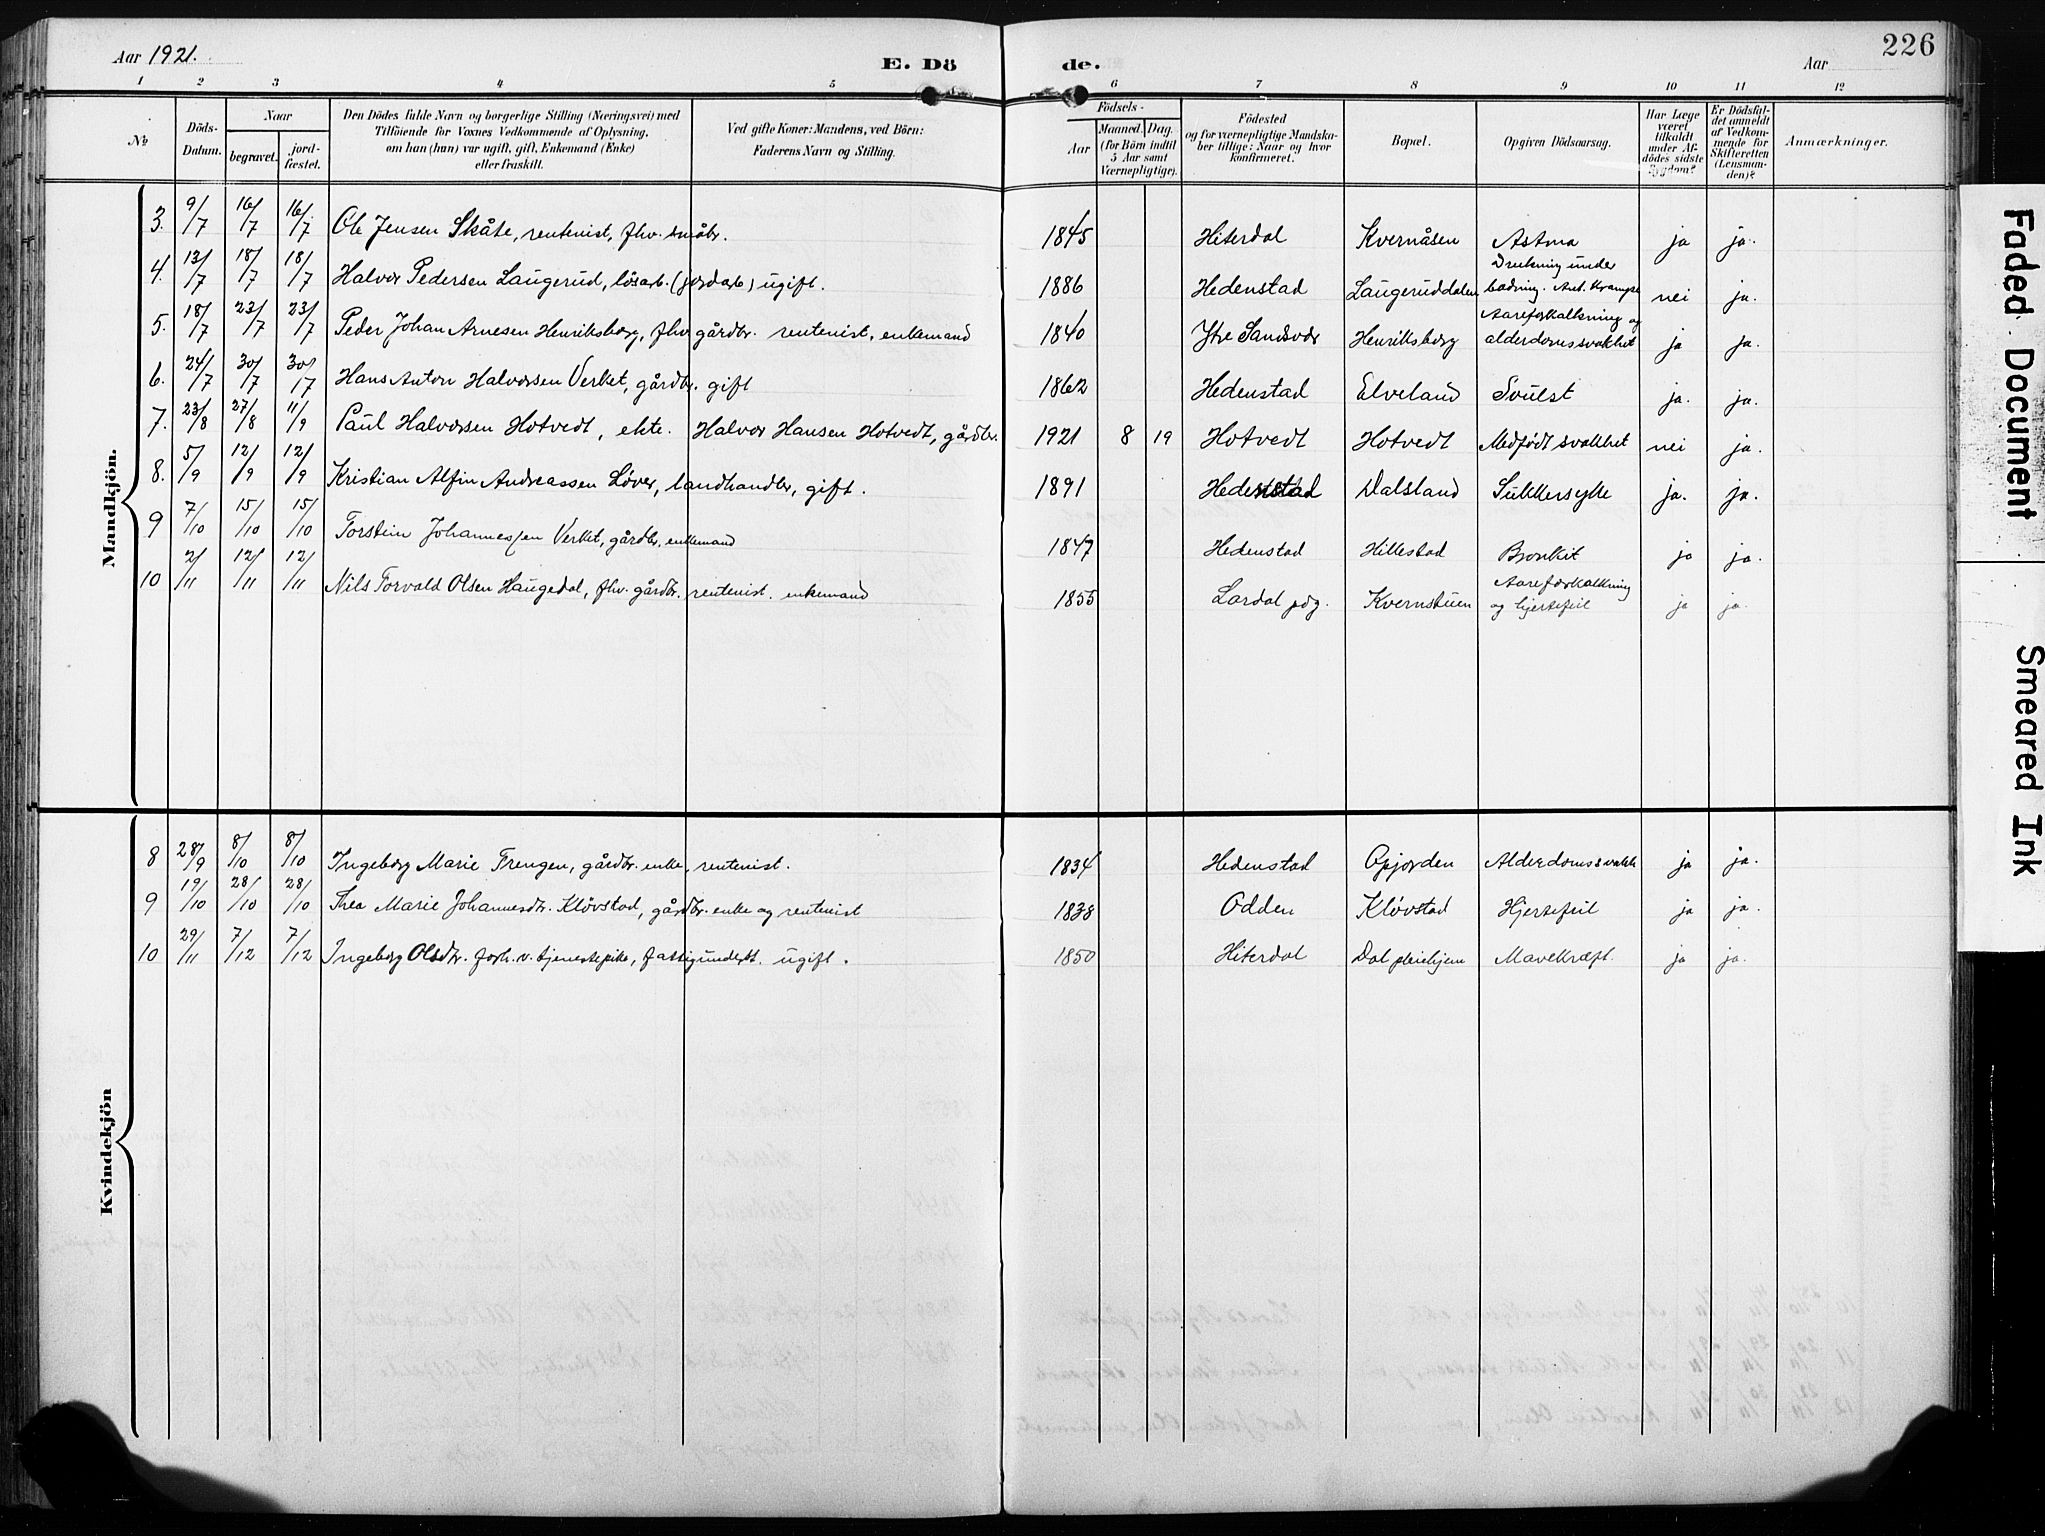 Aar 1921.
E. Dö
de.
Aar
226
1 2 3 4 5 6 7 8 9 10 11 12
No
Döds-Datum.
Naar
begravet.
jord-fæstet.
Den Dödes fulde Navn og borgerlige Stilling (Næringsvei) med
Tilföiende for Voxnes Vedkommende af Oplysning,
om han (hun) var ugift, gift, Enkemand (Enke)
eller fraskilt.
Ved gifte Koner: Mandens, ved Börn:
Faderens Navn og Stilling.
Födsels-
Aar
Maaned. Dag.
(for Börn indtil
5 Aar samt
Værnepligtige).
Födested
og for værnepligtige Mandska-
ber tillige: Naar og hvor
konfirmeret.
Bopæl.
Opgiven Dödsaarsag.
Har Læge
været
tilkaldt
under Af-
dödes sidste
Sygdom?
Er Dödsfal-
det anmeldt
af Vedkom-
mende for
Skifteretten
(Lensman-
den)?
Anmærkninger.
Mandkjön.
3. 9/7 16/7 16/7 Ole Jensen Skåte, rentenist, fhv. småbr. 1845 Hiterdal Kvernåsen Astma ja ja.
4. 13/7 18/7 18/7 Halvor Pedersen Laugerud, lösarb. (jordarb) ugift. 1886 Hedenstad Laugeruddalen Drukning under badning. Ant. Krampe nei ja.
5. 18/7 23/7 23/7 Peder Johan Arnesen Henriksberg, fhv gårdbr. rentenist, enkemand 1840 Ytre Sandsvær Henriksberg Aareforkalkning og alderdomssvakhet ja ja.
6. 24/7 30/7 30/7 Hans Anton Halvorsen Verket, gårdbr. gift 1862 Hedenstad Elveland Svulst ja. ja.
7. 23/8 27/8 11/9 Paul Halvorsen Hotvedt, ekte. Halvor Hansen Hotvedt, gårdbr. 1921 8 19 Hotvedt Hotvedt Medfødt svakhet nei ja.
8. 5/9 12/9 12/9 Kristian Alfin Andreassen Löver, landhandlr, gift. 1891 Hedenstad Dalsland Sukkersyke ja. ja.
9 7/10 15/10 15/10 Torstein Johannessen Verket, gårdbr, enkemand 1847 Hedenstad Hillestad Bronkit ja ja.
10 2/11 12/11 12/11 Nils Torvald Olsen Haugedal, fhv. gårdbr. rentenist. enkemand 1855 Lardal pdg. Kvernstuen Aareforkalkning og hjertefeil ja ja.
Kvindekjön
8 28/9 8/10 8/10 Ingeborg Marie Trengen, gårdbr. enke, rentenist. 1834 Hedenstad Opjorden Alderdomssvakh ja ja.
9 19/10 28/10 28/10 Thea Marie Johannesdtr. Klövstad, gårdbr. enke og rentenist 1838 Odden Klövstad Hjertefeil ja ja.
10 29/11 7/12 7/12 Ingeborg Olsdtr. forh. v. tjenestepike, fattigunderst. ugift. 1850 Hiterdal Dal pleiehjem Mavekræft. ja ja.
Faded Document
Smeared Ink